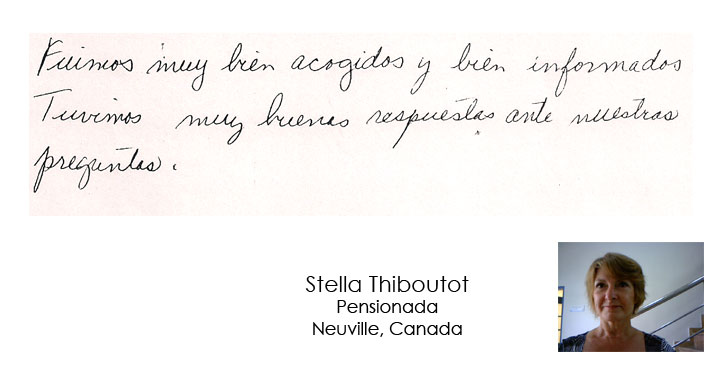 Fuimos muy bien acogidos y bien informados
Tuvimos muy buenas respuestas ante nuestras
preguntas.
Stella Thiboutot
Pensionada
Neuville, Canada